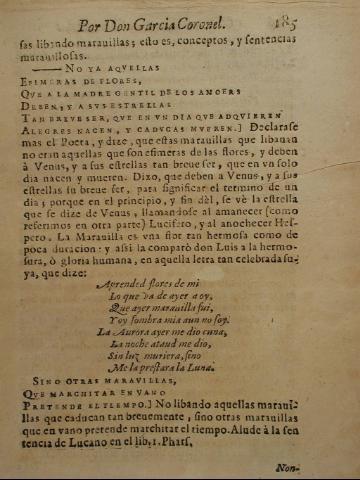 Por Don Garcia Coronel. 185
sas libando marauillas; esto es, conceptos, y sentencias
marauillosas.
—— NO YA AQVELLAS
EFIMERAS DE FLORES,
QVE A LA MADRE GENTIL DE LOS AMORES
DEBEN, Y A SVS ESTRELLAS
TAN BREVE SER, QVE EN VN DIA QVE ADQVIEREN
ALEGRES NACEN, Y CADVCAS MVEREN.] Declarase
mas el Poeta, y dize, que estas marauillas que libauan
no eran aquellas que son efimeras de las flores, y deben
à Venus, y a sus estrellas tan breue ser, que en vn solo
dia nacen y mueren. Dixo, que deben a Venus, y a sus
estrellas su breue ser, para significar el termino de vn
dia; porque en el principio, y fin dèl, se vè la estrella
que se dize de Venus, llamandose al amanecer (como
referimos en otra parte) Lucifero, y al anochecer Hes-
pero. La Marauilla es vna flor tan hermosa como de
poca duracion: y assi la comparò don Luis a la hermo-
sura, ò gloria humana, en aquella letra tan celebrada su-
ya, que dize:
Aprended flores de mi
Lo que va de ayer a oy,
Que ayer marauilla fui,
Y oy sombra mia aun no soy.
La Aurora ayer me dio cuna,
La noche ataud me dio,
Sin luz muriera, sino
Me la prestara la Luna.
SINO OTRAS MARAVILLAS,
QVE MARCHITAR EN VANO
PRETENDE EL TIEMPO.] No libando aquellas marauil-
llas que caducan tan breuemente, sino otras marauillas
que en vano pretende marchitar el tiempo. Alude à la sen
tencia de Lucano en el lib. 1. Phars.
Non-